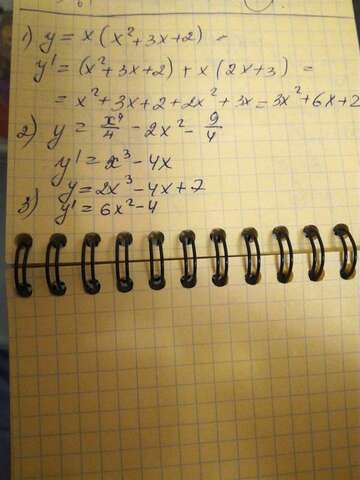 1) y = x (x² + 3x + 2) =
y' = (x² + 3x + 2) + x (2x + 3) =
= x² + 3x + 2 + 2x² + 3x = 3x² + 6x + 2
2) y = x⁴/4 - 2x² - 9/4
y' = x³ - 4x
3) y = 2x³ - 4x + 7
y' = 6x² - 4